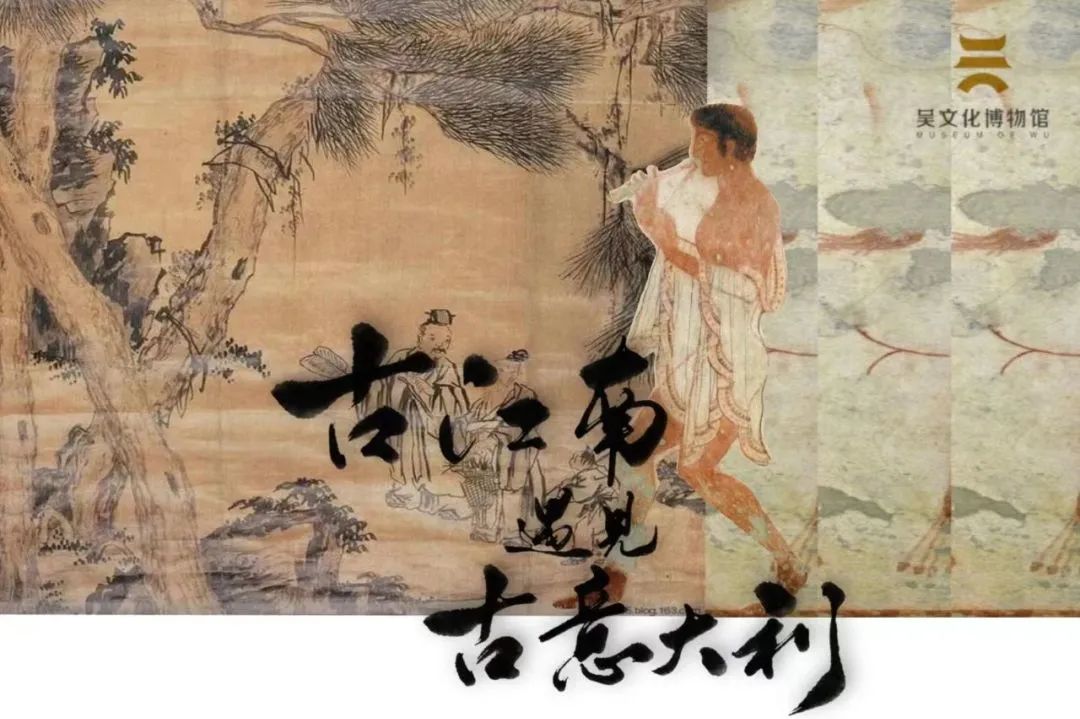 吴文化博物馆
MUSEUM OF WU
古江南
遇见
古意大利
.blog.163.com